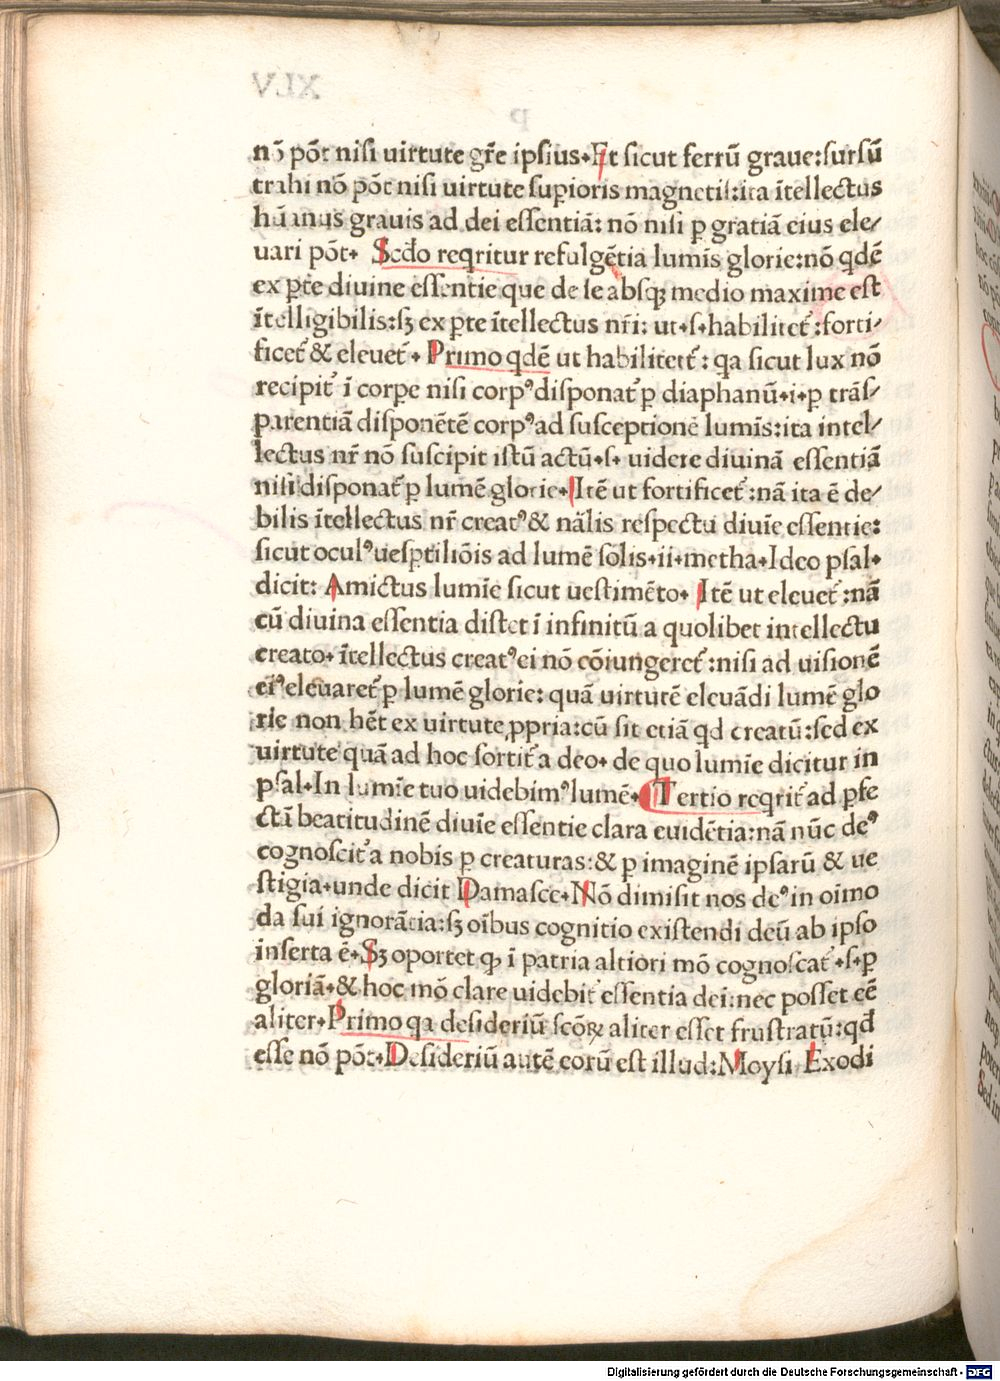 XLV
p
nō pōt nisi uirtute gr̄e ipsius. Et sicut ferrū graue: sursū
trahi nō pōt nisi uirtute supioris magnetis: ita ītellectus
hūanus grauis ad dei essentiā: nō nisi ꝑ gratiā eius ele/
uari pōt. Secd̄o reqritur refulgētia lumīs glorie: nō qdē
ex ꝑte diuine essentie que de se absqꝫ medio maxime est
ītelligibilis: sꝫ ex ꝑte ītellectus nr̄i: ut .s. habilitet᷑: forti/
ficet᷑ & eleuet᷑. Primo qdē ut habilitetet᷑: qa sicut lux nō
recipit᷑ ī corpe nisi corpꝰ disponat᷑ ꝑ diaphanū .i. ꝑ trās/
parentiā disponētē corpꝰ ad susceptionē lumīs: ita intel/
lectus nr̄ nō suscipit istū actū .s. uidere diuinā essentiā
nisi disponat᷑ ꝑ lumē glorie. Itē ut fortificet᷑: nā ita ē de/
bilis ītellectus nr̄ creatꝰ & nālis respectu diuīe essentie:
sicut oculꝰ uesptiliōis ad lumē solis .ii. metha. Ideo psal.
dicit: Amictus lumīe sicut uestimēto. Itē ut eleuet᷑: nā
cū diuina essentia distet ī infinitū a quolibet intellectu
creato. ītellectus creatꝰ ei nō cōiungeret᷑: nisi ad uisionē
eiꝰ eleuaret᷑ ꝑ lumē glorie: quā uirtutē eleuādi lumē glo
rie non hēt ex uirtute ꝓpria: cū sit etiā qd creatū: sed ex
uirtute quā ad hoc sortit᷑ a deo. de quo lumīe dicitur in
psal. In lumīe tuo uidebimꝰ lumē. Tertio reqrit᷑ ad ꝑfe
ctā beatitudinē diuīe essentie clara euidētia: nā nūc deꝰ
cognoscit᷑ a nobis ꝑ creaturas: & ꝑ imaginē ipsarū & ue
stigia. unde dicit Damasce. Nō dimisit nos deꝰ in oīmo
da sui ignorācia: sꝫ oībus cognitio existendi deū ab ipso
inserta ē. Sꝫ oportet ꝙ ī patria altiori mō cognoscat᷑ .s. ꝑ
gloriā. & hoc mō clare uidebit᷑ essentia dei: nec posset eē
aliter. Primo qa desideriū scōꝝ aliter esset frustratū: qd̄
esse nō pōt. Desideriū autē eorū est illud: Moysi Exodi
Digitalisierung gefördert durch die Deutsche Forschungsgemeinschaft - DFG